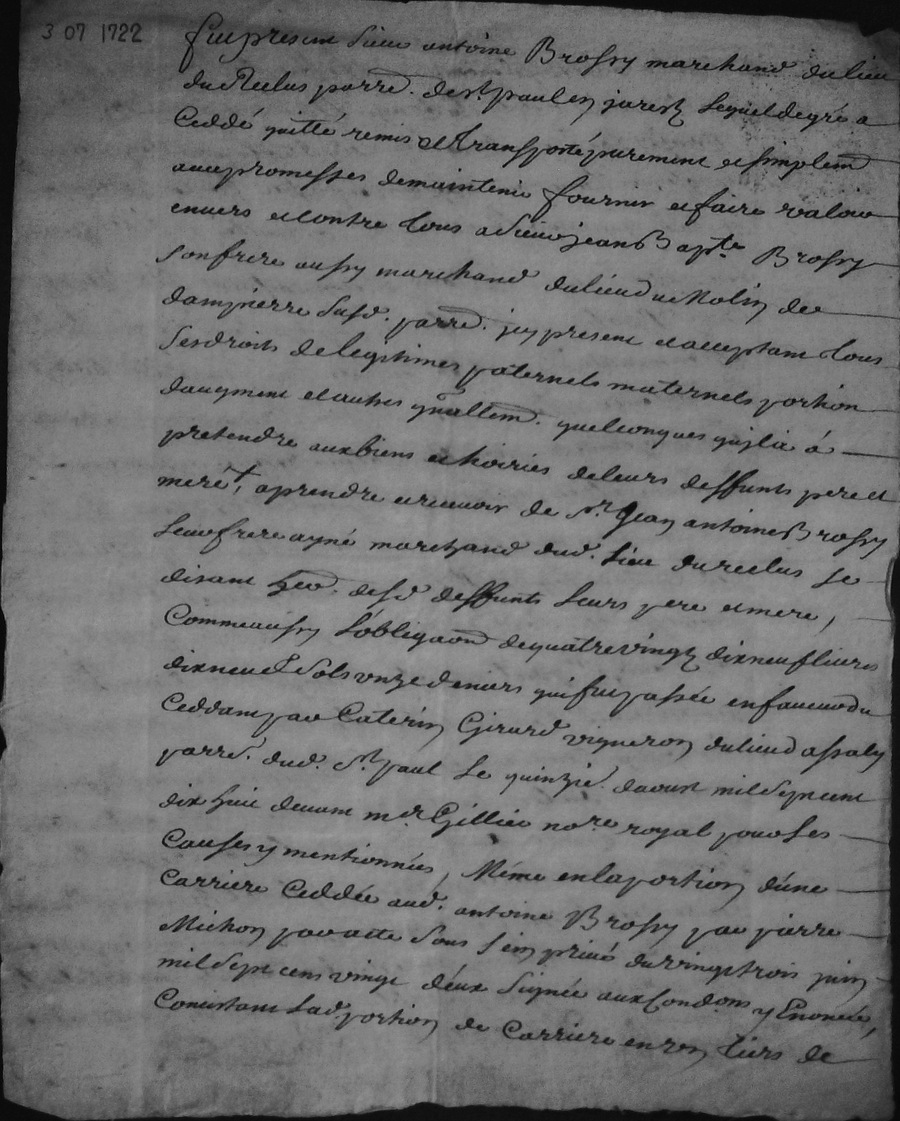 3 07 1722
fut present sieur antoine Brossy marchand du lieu
du Reclus parre. de st. paul en jarest lequel de gré a
Ceddé quitté remis et transporté purement et simplemt
avec promesses de maintenir fournir et faire valoir
envers et contre tous a sieur jean Bapte. Brossy
son frere aussy marchand du lieu du Molin de
dampierre susd. parre. icy present et acceptant tous
ses droits de legitimes paternels maternels portion
daugment et autres gnallem. quelconques quil a à
pretendre aux biens et hoiries de leurs deffunts pere et
mere, a prendre et recevoir de sr. Jean antoine Brossy
leur frere ayné marchand dud. lieu du reclus se
disant her. desd deffunts leurs pere et mere,
Comme aussy l'obligaon de quatre vingt dix neuf livres
dix neuf sols onze deniers qui fut passée en faveur du
Ceddant par Caterin Girard vigneron du lieu dassaly
parre. dud. st. paul le quinzie. daoust mil sept cent
dix huit devant me. Gillier nore. royal pour les
Causes y mentionnées, Même en la portion d'une
Carriere Ceddée aud. antoine Brossy par pierre
Michon par acte sous sein privé du vingt trois juin
mil sept cens vingt déux signée aux Condons y Enoncée,
Consistant lad. portion de Carriere en un tiers de